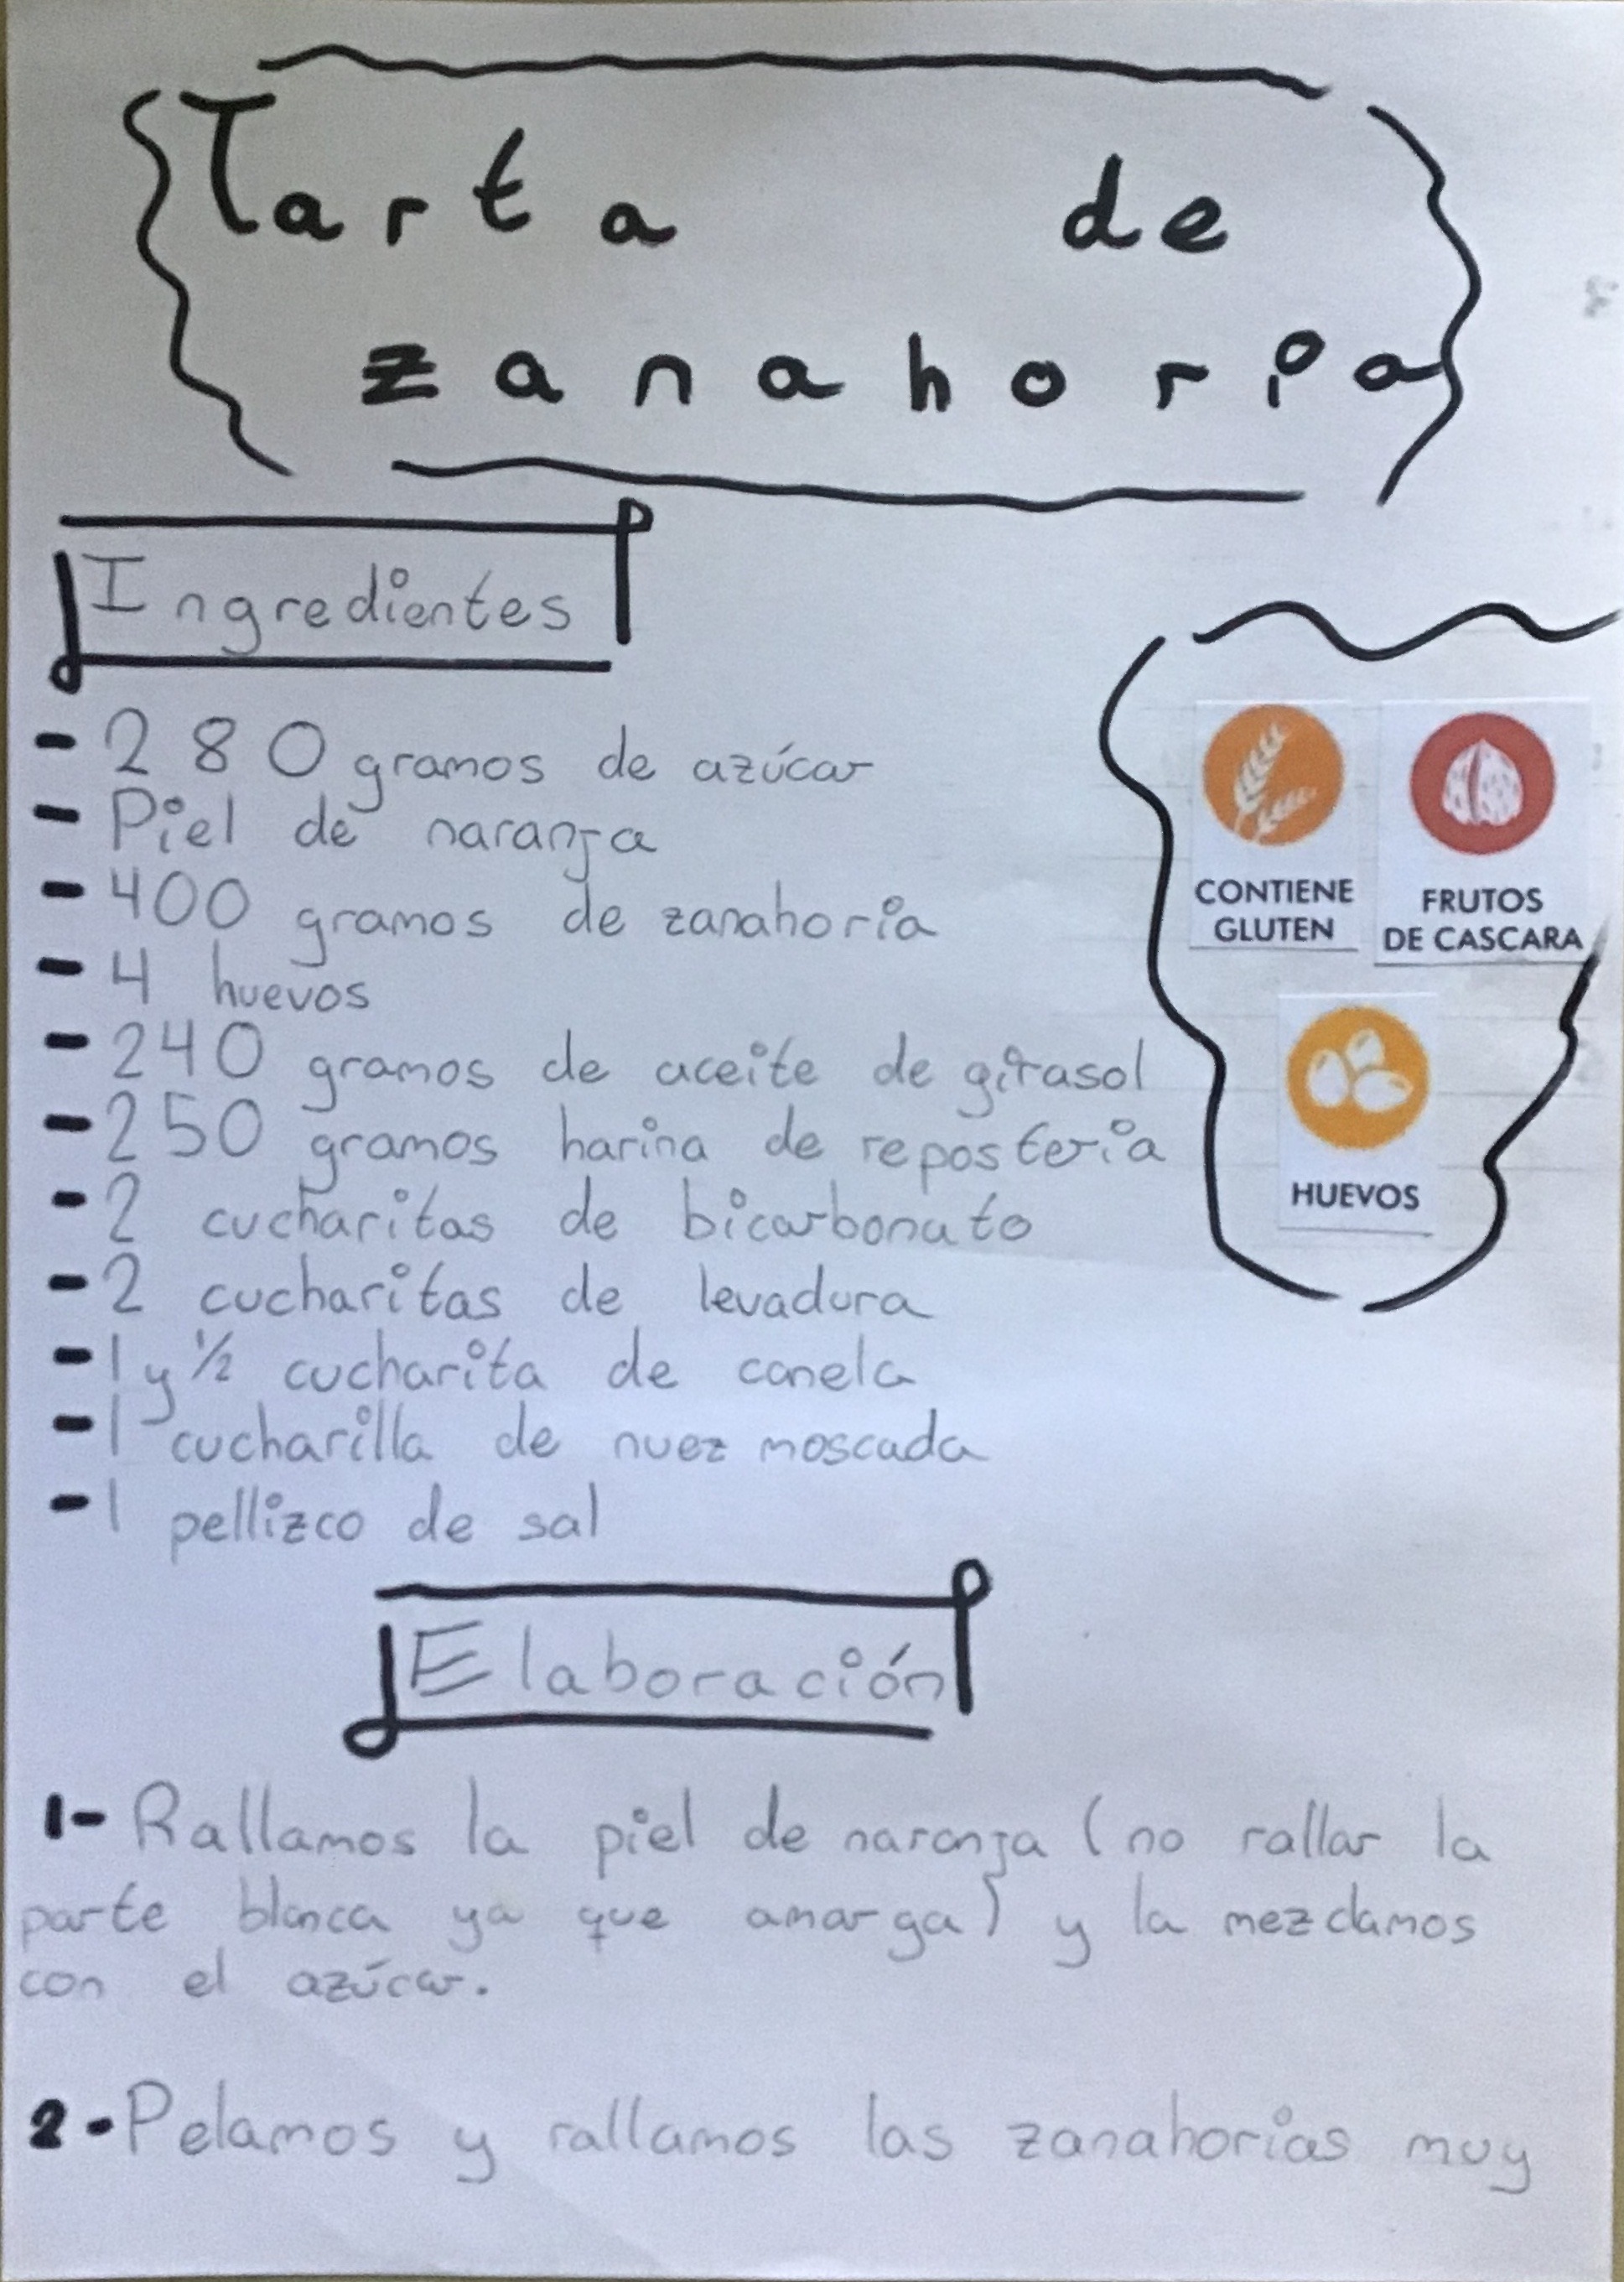 Tarta de
zanahoria
Ingredientes
- 280 gramos de azúcar
- Piel de naranja
- 400 gramos de zanahoria
- 4 huevos
- 240 gramos de aceite de girasol
- 250 gramos harina de repostería
- 2 cucharitas de bicarbonato
- 2 cucharitas de levadura
- 1 y 1/2 cucharita de canela
- 1 cucharilla de nuez moscada
- 1 pellizco de sal
CONTIENE
GLUTEN
FRUTOS
DE CASCARA
HUEVOS
Elaboración
1- Rallamos la piel de naranja (no rallar la
parte blanca ya que amarga) y la mezclamos
con el azúcar.
2- Pelamos y rallamos las zanahorias muy